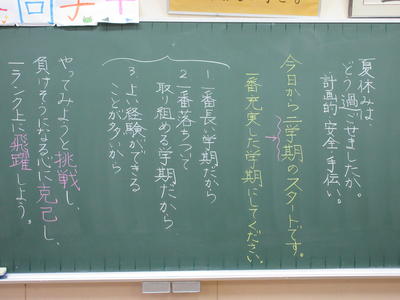 夏休みは、
どう過ごせましたか。
計画的、安全、手伝い。
今日から二学期のスタートです。
一番充実した学期にしてください。
1 一番長い学期だから
2 一番落ちついて
取り組める学期だから
3 よい経験ができる
ことが多いから
やってみようと挑戦し、
負けそうになる心に克己し、
一ランク上に飛躍しよう。